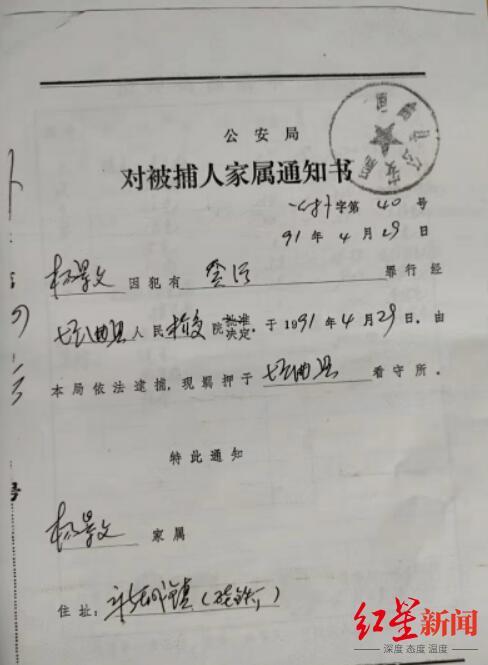 公安局
对被捕人家属通知书
字第 40 号
91 年 4 月 29 日
杨景文 因犯有 贪污 罪行经
垣曲县 人民 检察 院 批准 决定,于 1991 年 4 月 29 日,由
本局依法逮捕,现羁押于 垣曲县 看守所。
特此通知
杨景文 家属
住址:
红星新闻
深度 态度 温度